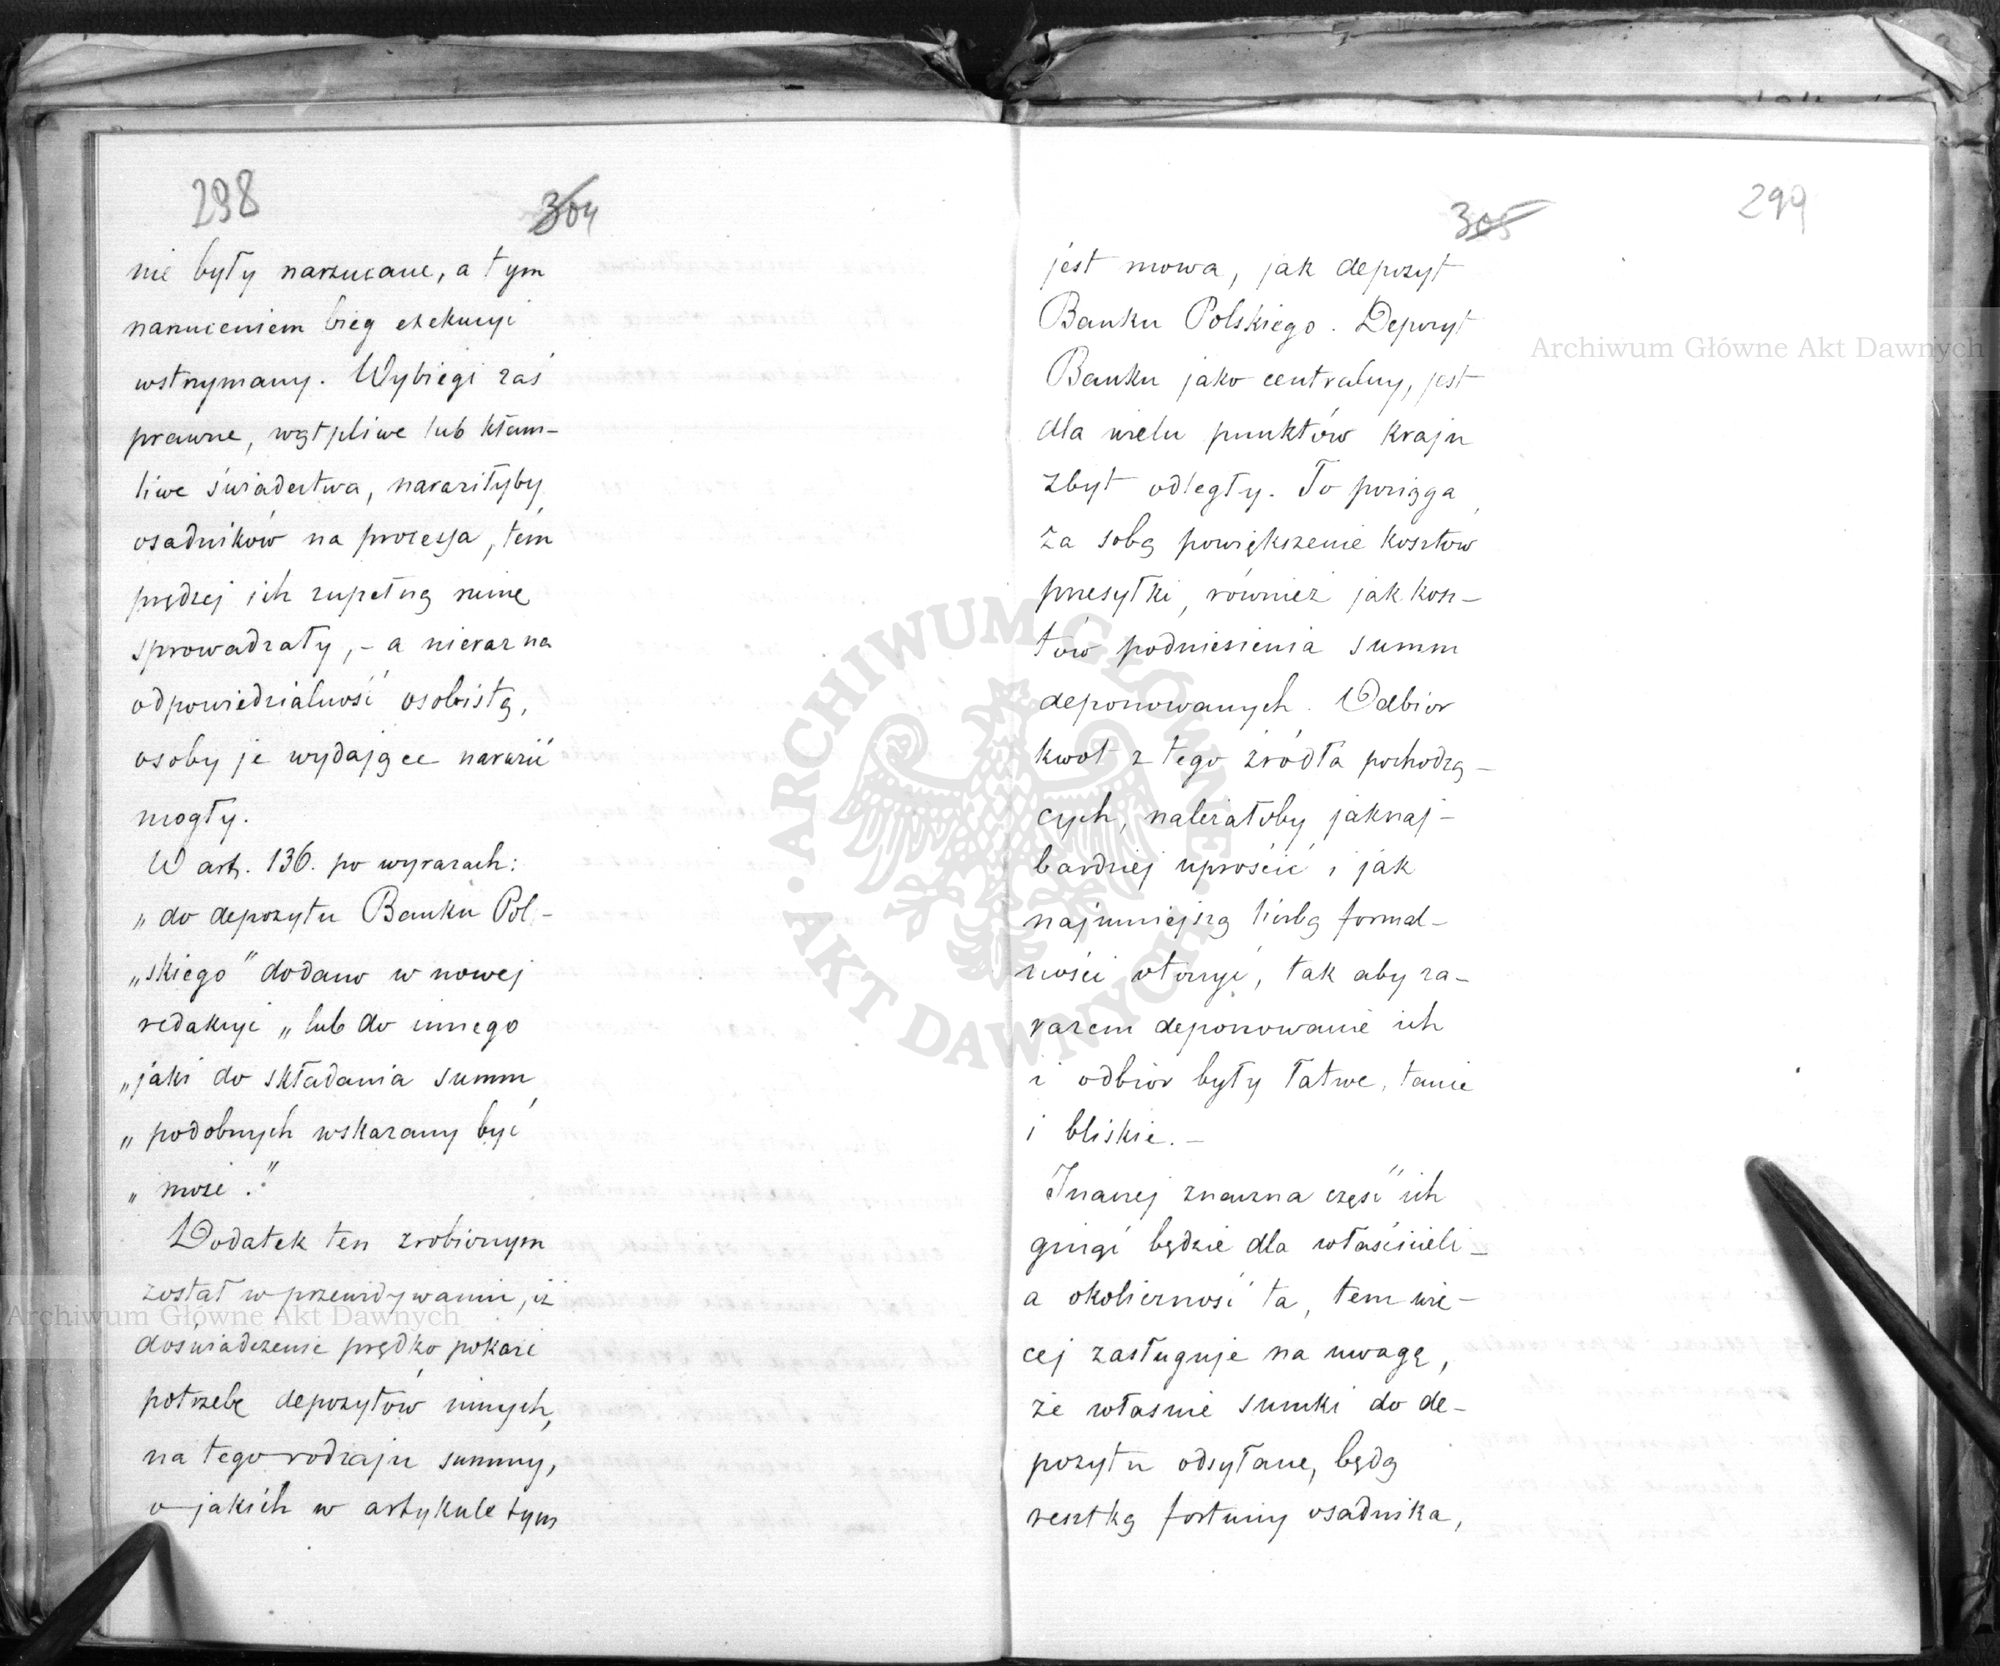 298
304
nie były narzucane, a tym
narzuceniem bieg exekucyi
wstrzymany. Wybiegi zaś
prawne, wątpliwe lub kłam-
liwe świadectwa, naraziłyby
osadników na processa, tém
prędzej ich zupełną ruinę
sprowadzały, - a nieraz na
odpowiedzialność osobistą,
osoby je wydające narazić
mogły.
W art. 136. po wyrazach:
„do depozytu Banku Pol-
„skiego" dodano w nowej
redakcyi „lub do innego
„jaki do składania summ
„podobnych wskazany być
„może."
Dodatek ten zrobionym
został w przewidywaniu, iż
doświadczenie prędko pokaże
potrzebę depozytów innych,
na tego rodzaju summy,
o jakich w artykule tym
305
299
jest mowa, jak depozyt
Banku Polskiego. Depozyt
Banku jako centralny, jest
dla wielu punktów kraju
zbyt odległy. To pociąga
za sobą powiększenie kosztów
przesyłki, również jak kosz-
tów podniesienia summ
deponowanych. Odbior
kwot z tego źródła pochodzą-
cych, należałoby jaknaj-
bardziej uprościć i jak
najmniejszą liczbą formal-
ności otoczyć, tak aby za-
razem deponowanie ich
i odbiór były łatwe, tanie
i bliskie. -
Inaczej znaczna część ich
ginąć będzie dla właścicieli -
a okoliczność ta, tem wię-
cej zasługuje na uwagę,
że właśnie sumki do de-
pozytu odsyłane, będą
resztką fortuny osadnika,
Archiwum Główne Akt Dawnych
Archiwum Główne Akt Dawnych
ARCHIWUM GŁÓWNE
AKT DAWNYCH